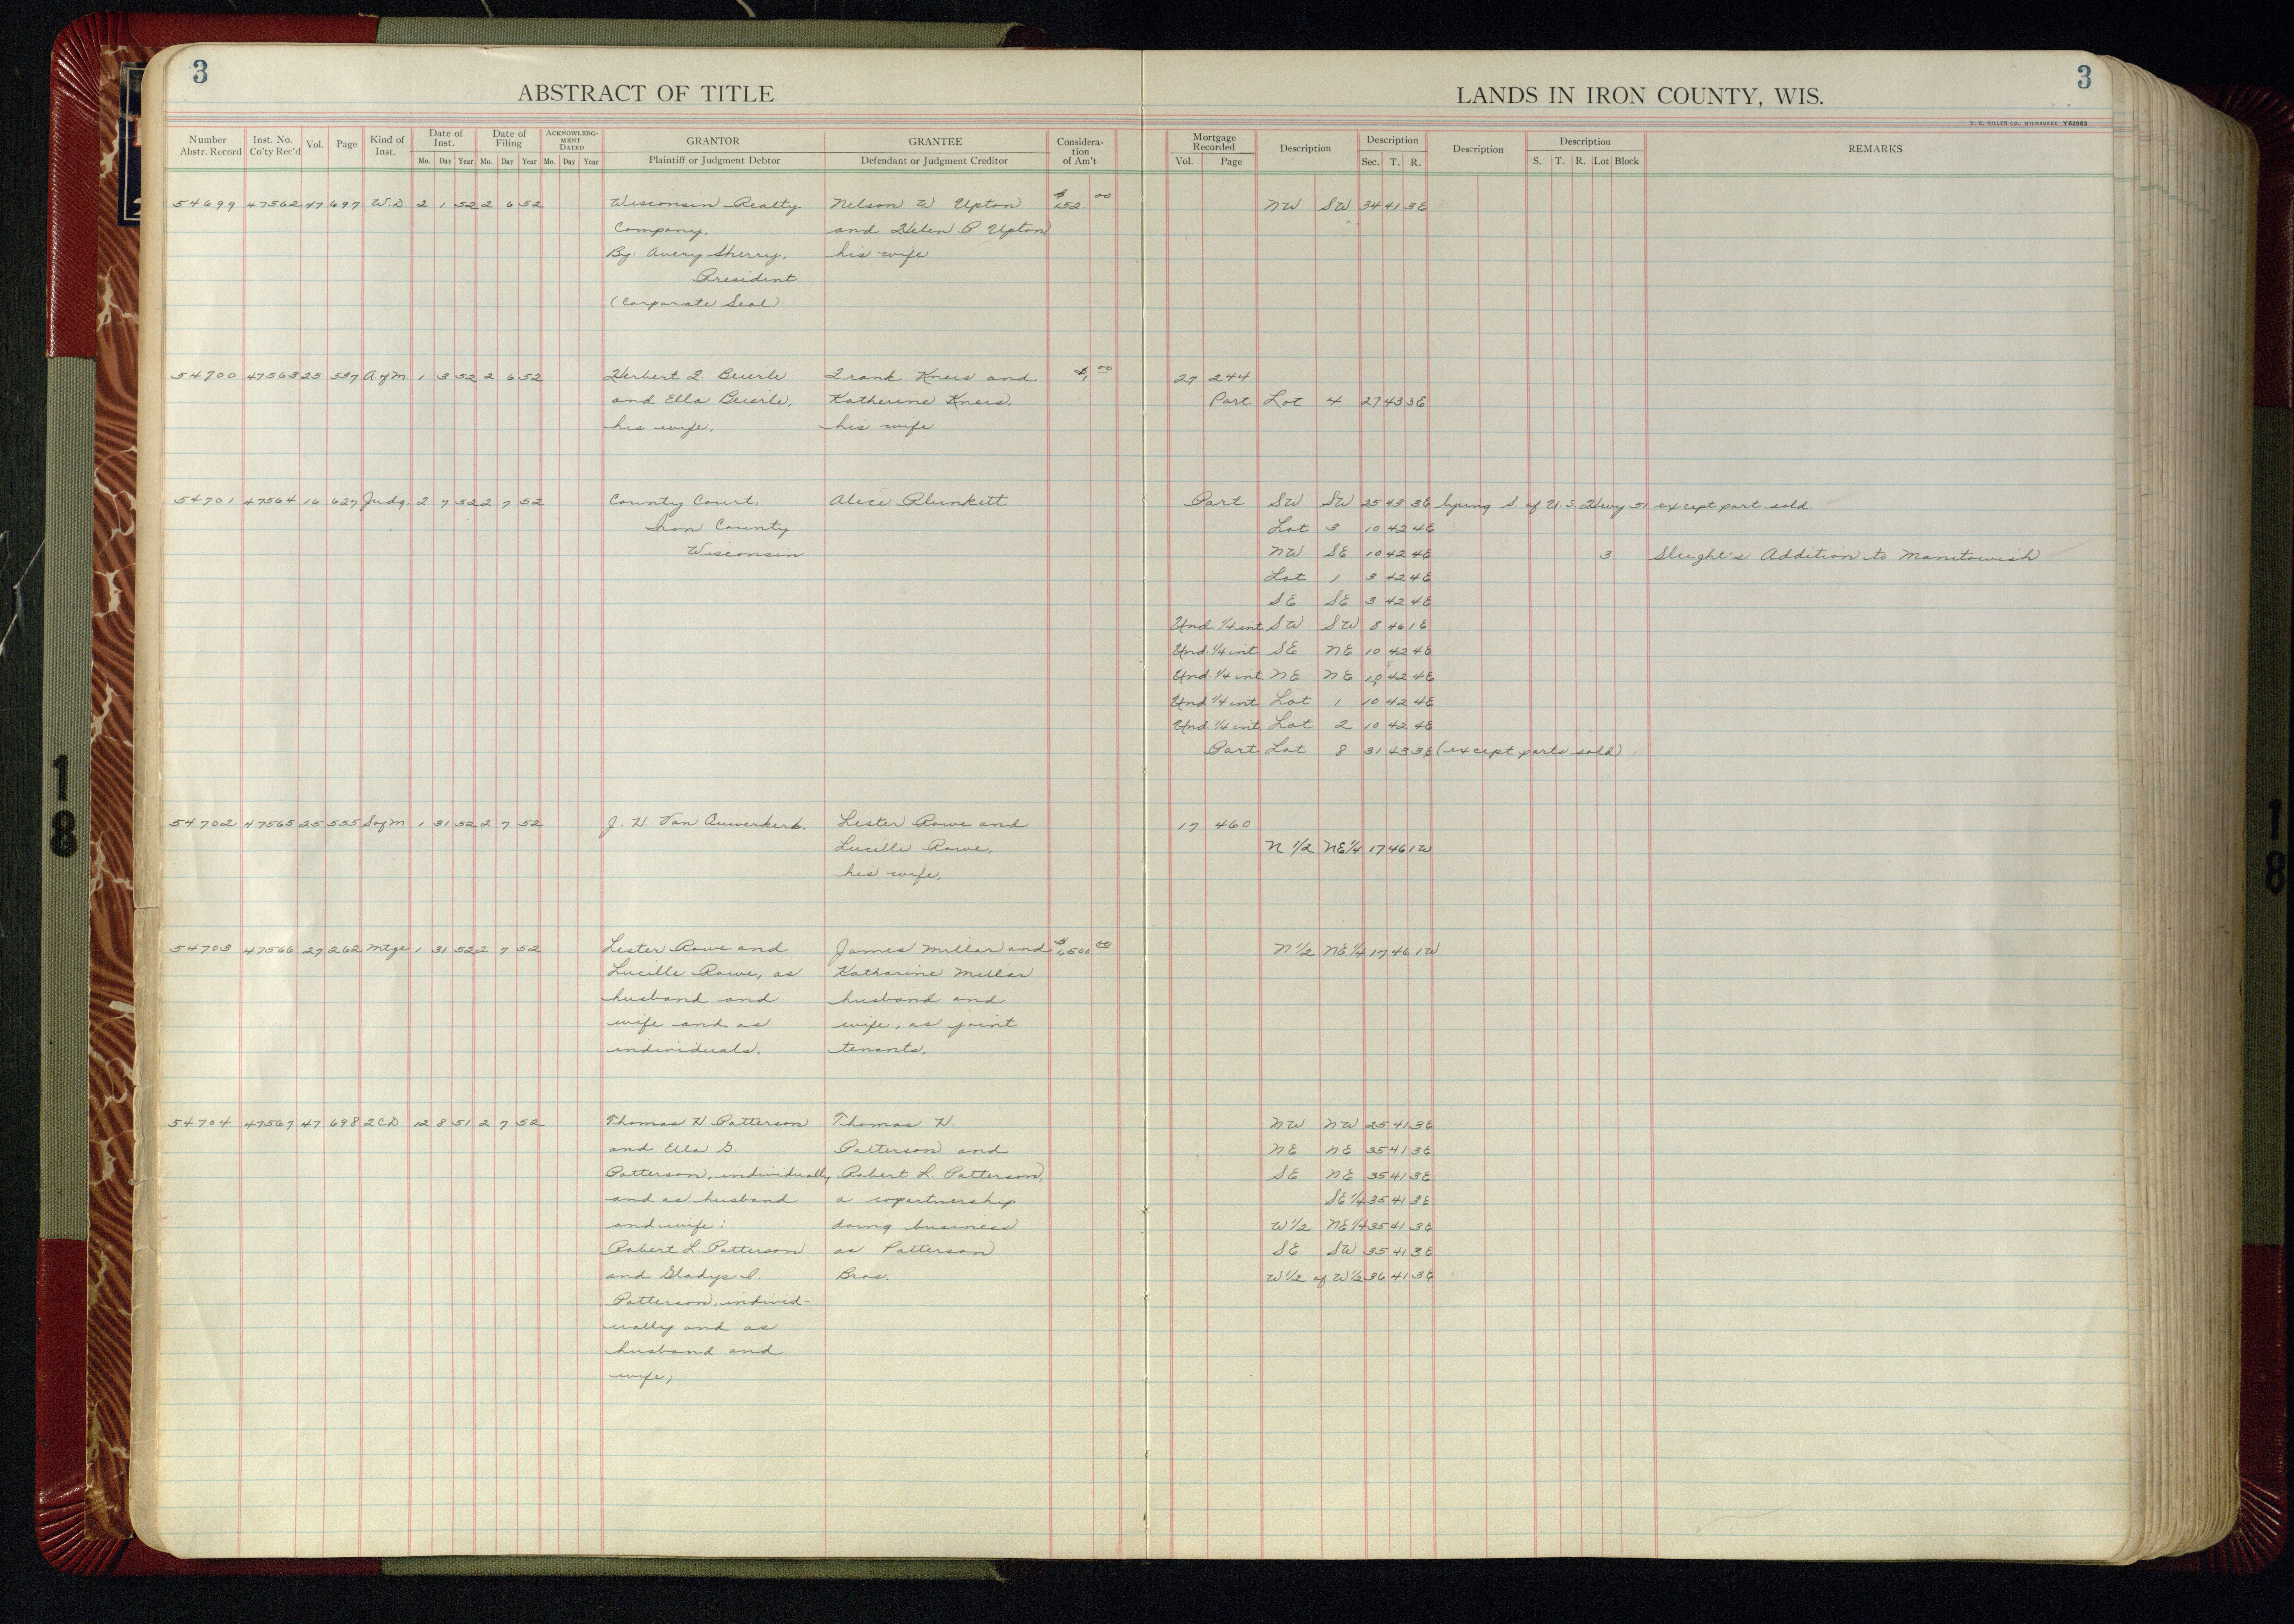 3
ABSTRACT OF TITLE
LANDS IN IRON COUNTY, WIS.
3
H. C. MILLER CO., MILWAUKEE Y62963
Number Abstr. Record | Inst. No. Co'ty Rec'd | Vol. | Page | Kind of Inst. | Date of Inst. Mo. Day Year | Date of Filing Mo. Day Year | ACKNOWLEDGMENT DATED Mo. Day Year | GRANTOR Plaintiff or Judgment Debtor | GRANTEE Defendant or Judgment Creditor | Consideration of Am't | Mortgage Recorded Vol. Page | Description | Description Sec. T. R. | Description | Description S. T. R. Lot Block | REMARKS
54699 47562 47 697 W.D. 2 1 52 2 6 52 Wisconsin Realty Nelson W Upton $ 152.00 NW SW 34 41 3E
Company. and Helen P. Upton
By: Avery Sherry, his wife
President
(Corporate Seal)
54700 47563 25 537 A of M. 1 3 52 2 6 52 Herbert F. Beierle Frank Kneis and $1.00 27 244
and Ella Beierle, Katherine Kneis, Part Lot 4 27 43 3E
his wife. his wife
54701 47564 16 627 Judg. 2 7 52 2 7 52 County Court, Alice Plunkett Part SW SW 25 43 3E lying S of U.S. Hwy 51 except part sold.
Iron County Lot 3 10 42 4E
Wisconsin NW SE 10 42 4E 3 Sleight's Addition to Manitowish
Lot 1 3 42 4E
SE SE 3 42 4E
Und. 1/4 int. SW SW 8 46 1E
Und. 1/4 int SE NE 10 42 4E
Und. 1/4 int. NE NE 10 42 4E
Und 1/4 int. Lot 1 10 42 4E
Und. 1/4 int. Lot 2 10 42 4E
Part Lot 8 31 43 3E (except parts sold)
54702 47565 25 555 S of M 1 31 52 2 7 52 J. H. Van Ouwerkerk. Lester Rowe and 17 460
Lucille Rowe, N 1/2 NE 1/4 17 46 1W
his wife.
54703 47566 27 262 Mtge 1 31 52 2 7 52 Lester Rowe and James Millar and $1,500 00 N 1/2 NE 1/4 17 46 1W
Lucille Rowe, as Katharine Millar
husband and husband and
wife and as wife, as joint
individuals. tenants.
54704 47567 47 698 2CD 12 8 51 2 7 52 Thomas H. Patterson Thomas H. NW NW 25 41 3E
and Ella G. Patterson and NE NE 35 41 3E
Patterson, individually Robert L. Patterson, SE NE 35 41 3E
and as husband a copartnership SE 1/4 35 41 3E
and wife; doing business W 1/2 NE 1/4 35 41 3E
Robert L. Patterson as Patterson SE SW 35 41 3E
and Gladys I. Bros. W 1/2 of W 1/2 36 41 3E
Patterson, individ-
ually and as
husband and
wife;
18
18